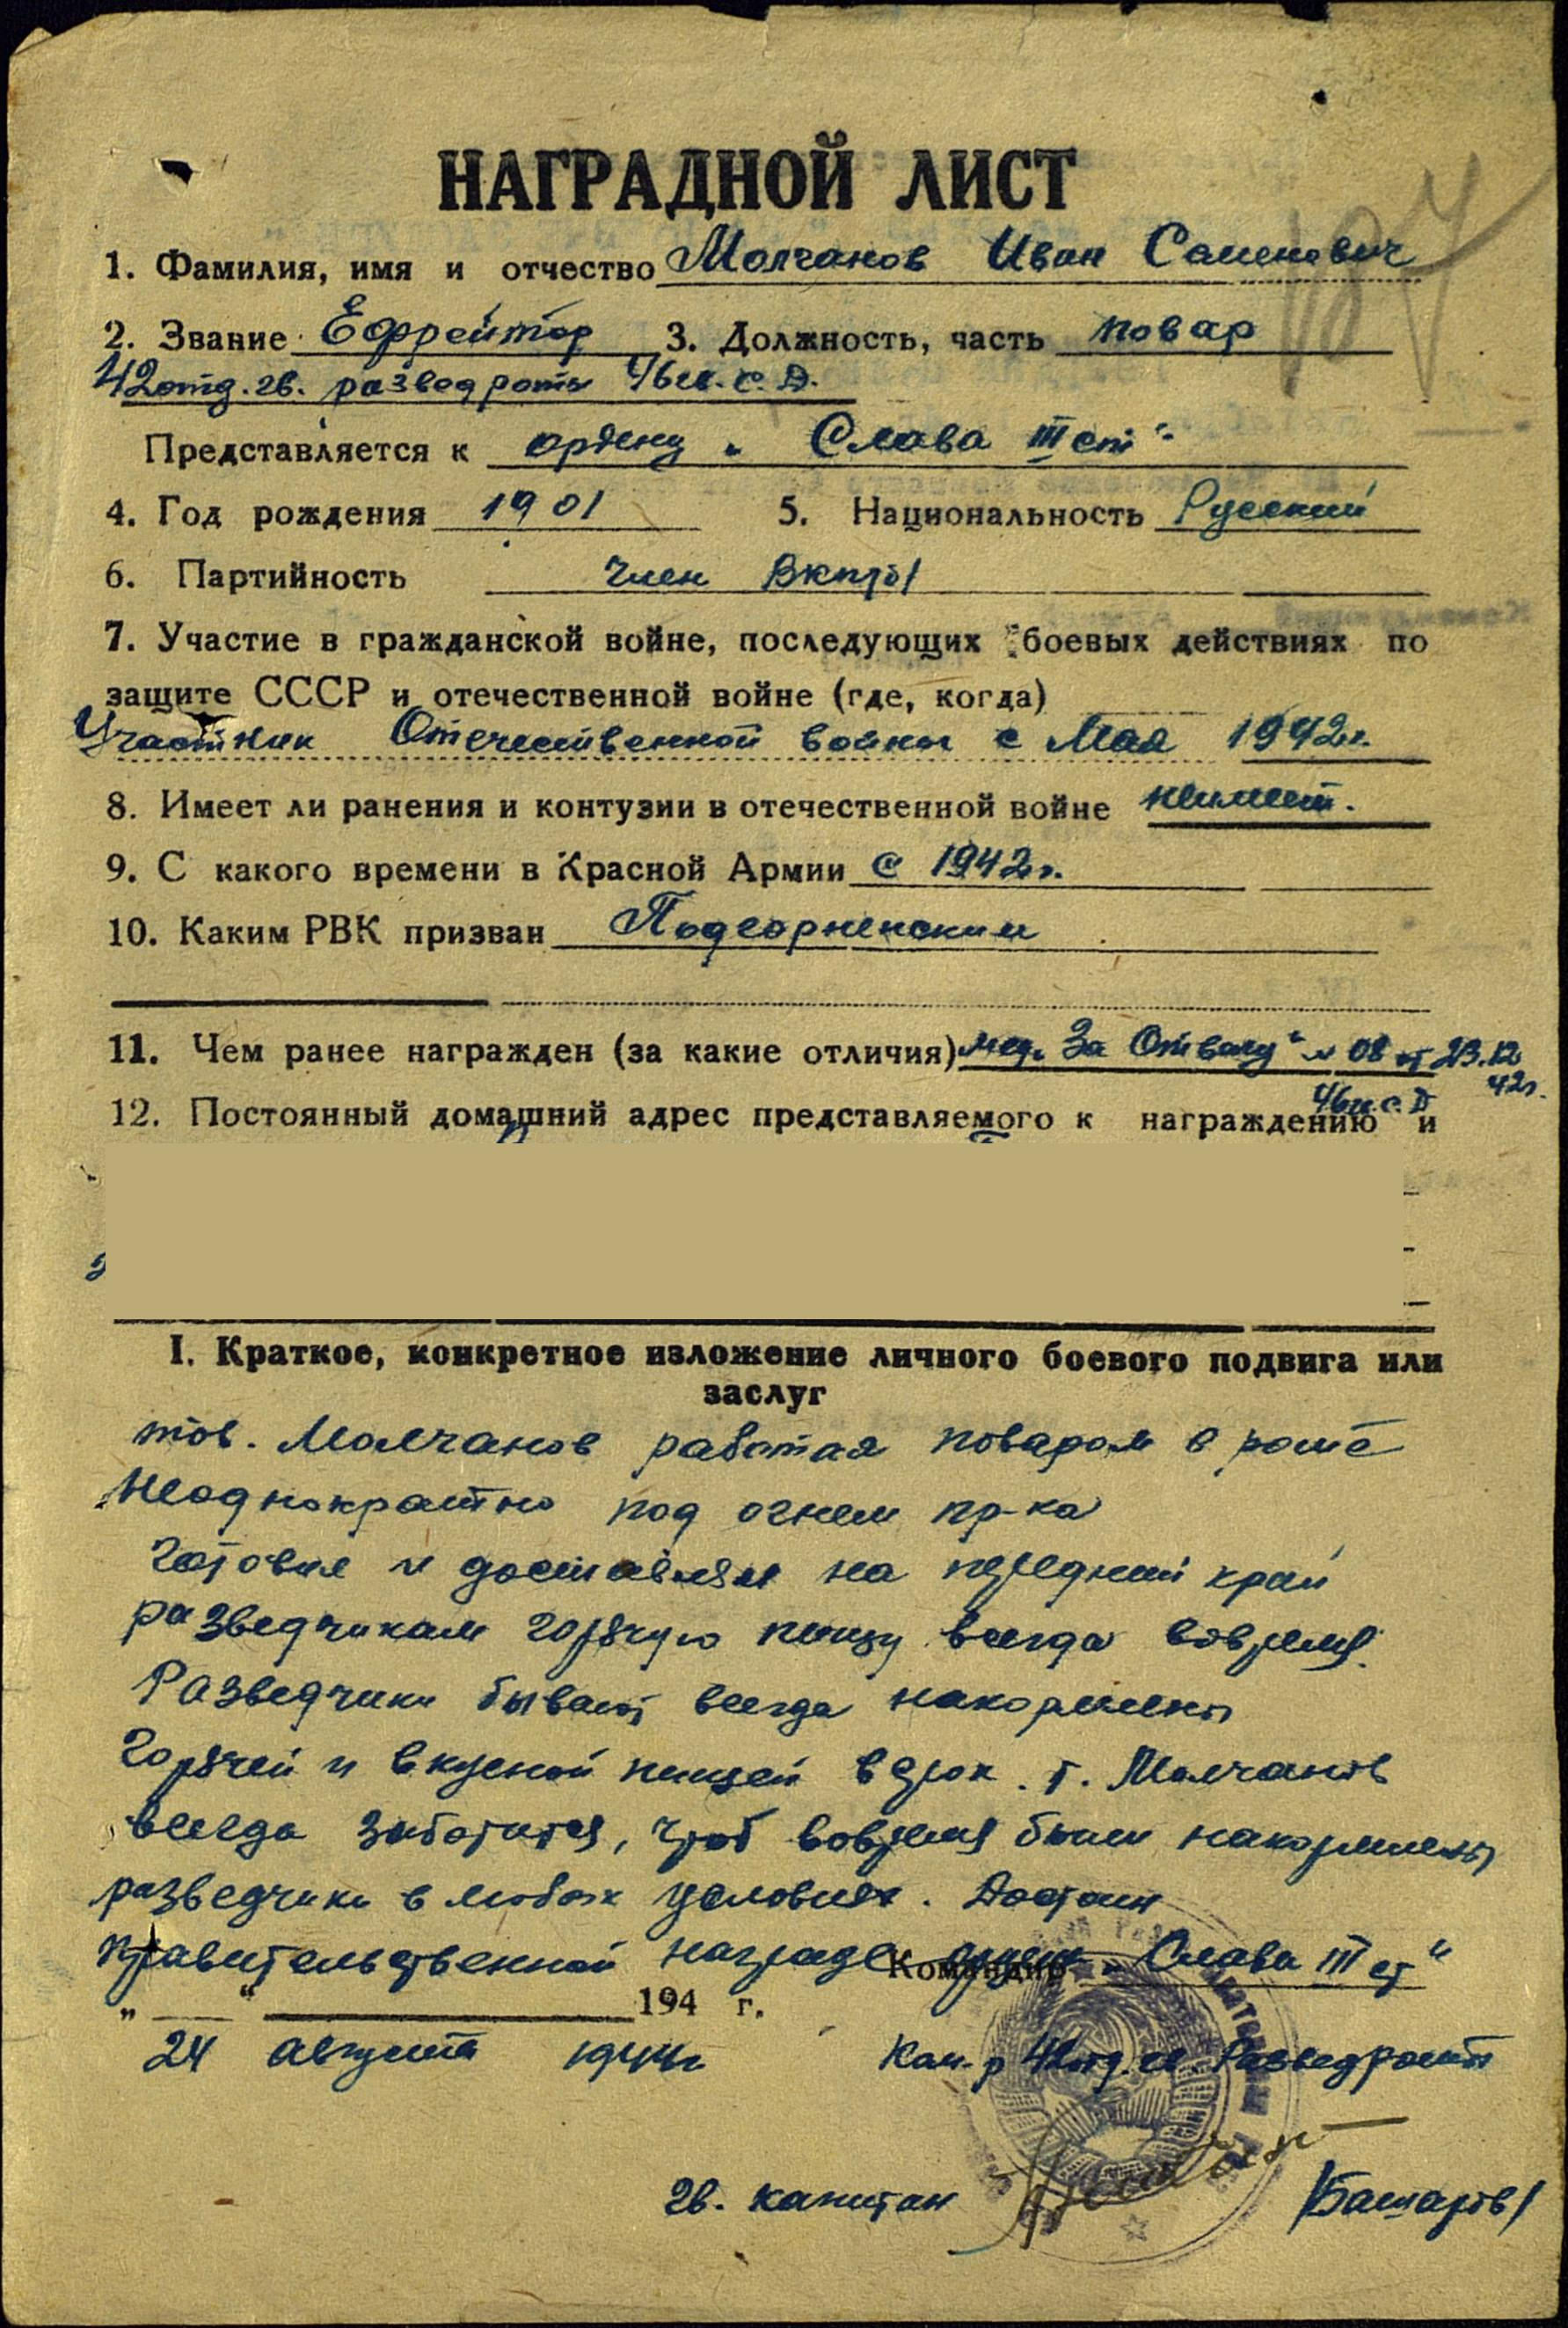 НАГРАДНОЙ ЛИСТ
1. Фамилия, имя и отчество Молчанов Иван Семенович
2. Звание Ефрейтор 3. Должность, часть повар
42 отд. гв. разведроты
Представляется к ордену „Слава III ст“
4. Год рождения 1901 5. Национальность Русский
6. Партийность Член ВКП/б/
7. Участие в гражданской войне, последующих боевых действиях по
защите СССР и отечественной войне (где, когда)
Участник Отечественной войны с Мая 1942г.
8. Имеет ли ранения и контузии в отечественной войне неимеет.
9. С какого времени в Красной Армии с 1942г.
10. Каким РВК призван Подгорненским
11. Чем ранее награжден (за какие отличия) мед. „За Отвагу“ № 08 от 23.12
42г.
12. Постоянный домашний адрес представляемого к награждению и
I. Краткое, конкретное изложение личного боевого подвига или
заслуг
тов. Молчанов работая поваром в роте
неоднократно под огнем пр-ка
готовил и доставлял на передний край
разведчикам горячую пищу всегда вовремя.
Разведчики бывают всегда накормлены
горячей и вкусной пищей в срок. т. Молчанов
всегда заботится, чтоб вовремя были накормлены
разведчики в любых условиях. Достоин
правительственной награде ордену „Слава III ст“
Командир
„ “ 194 г.
24 августа 1944г Ком-р 42 отд. гв. Разведроты
гв. капитан /Башаров/
107